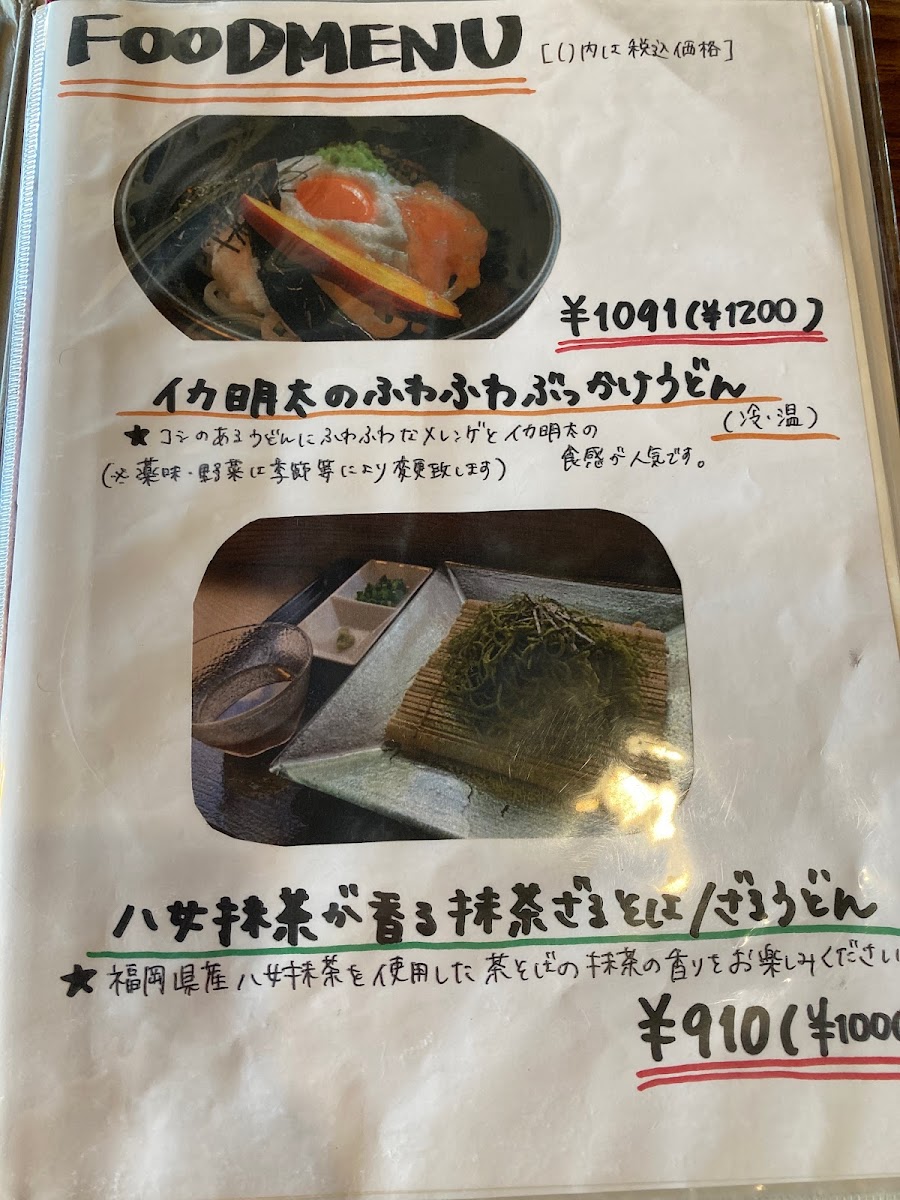 FOODMENU [()内は税込価格]
¥1091(¥1200)
イカ明太のふわふわぶっかけうどん
(冷・温)
★コシのあるうどんにふわふわなメレンゲとイカ明太の
食感が人気です。
(※薬味・野菜は季節等により変更致します)
八女抹茶が香る抹茶ざるそば/ざるうどん
★福岡県産八女抹茶を使用した茶そばの抹茶の香りをお楽しみください
¥910(¥1000